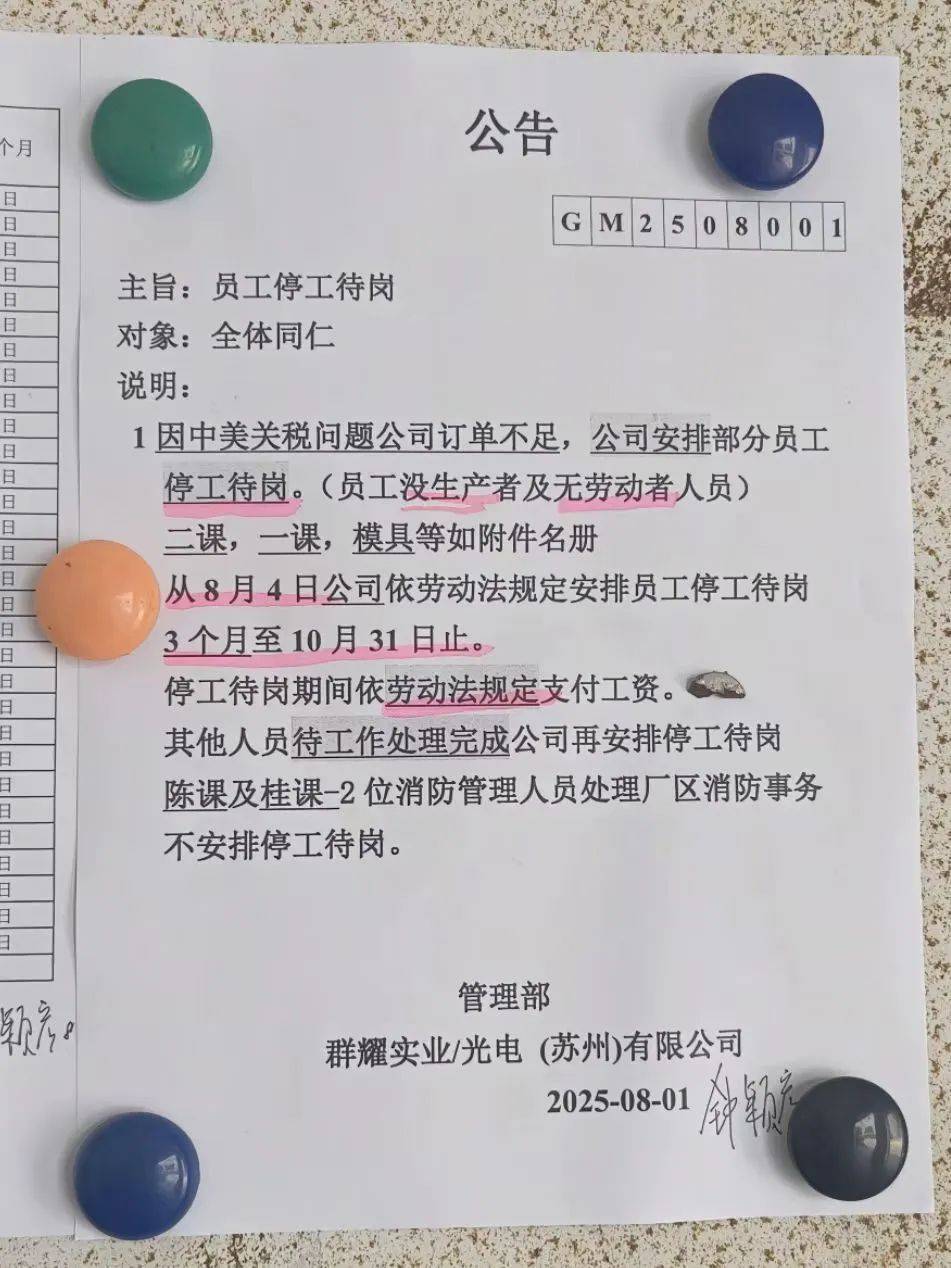 公告
GM2508001
主旨：员工停工待岗
对象：全体同仁
说明：
1 因中美关税问题公司订单不足，公司安排部分员工
停工待岗。（员工没生产者及无劳动者人员）
二课，一课，模具等如附件名册
从 8 月 4 日公司依劳动法规定安排员工停工待岗
3 个月至 10 月 31 日止。
停工待岗期间依劳动法规定支付工资。
其他人员待工作处理完成公司再安排停工待岗
陈课及桂课-2 位消防管理人员处理厂区消防事务
不安排停工待岗。
管理部
群耀实业/光电 (苏州)有限公司
2025-08-01
个月
日
日
日
日
日
日
日
日
日
日
日
日
日
日
日
日
日
日
日
日
日
日
日
日
日
日
日
日
日
日